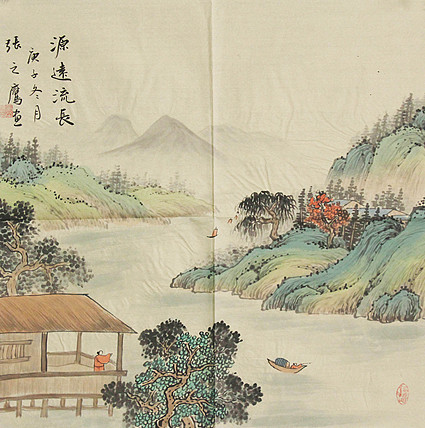 源遠流長
庚子冬月
張之鷹画